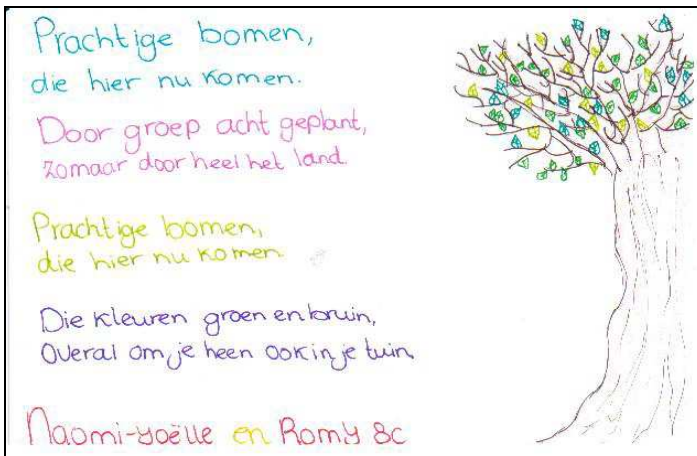 Prachtige bomen,
die hier nu komen.
Door groep acht geplant,
zomaar door heel het land.
Prachtige bomen,
die hier nu komen.
Die kleuren groen en bruin,
overal om je heen ook in je tuin.
Naomi-yoëlle en Romy 8c